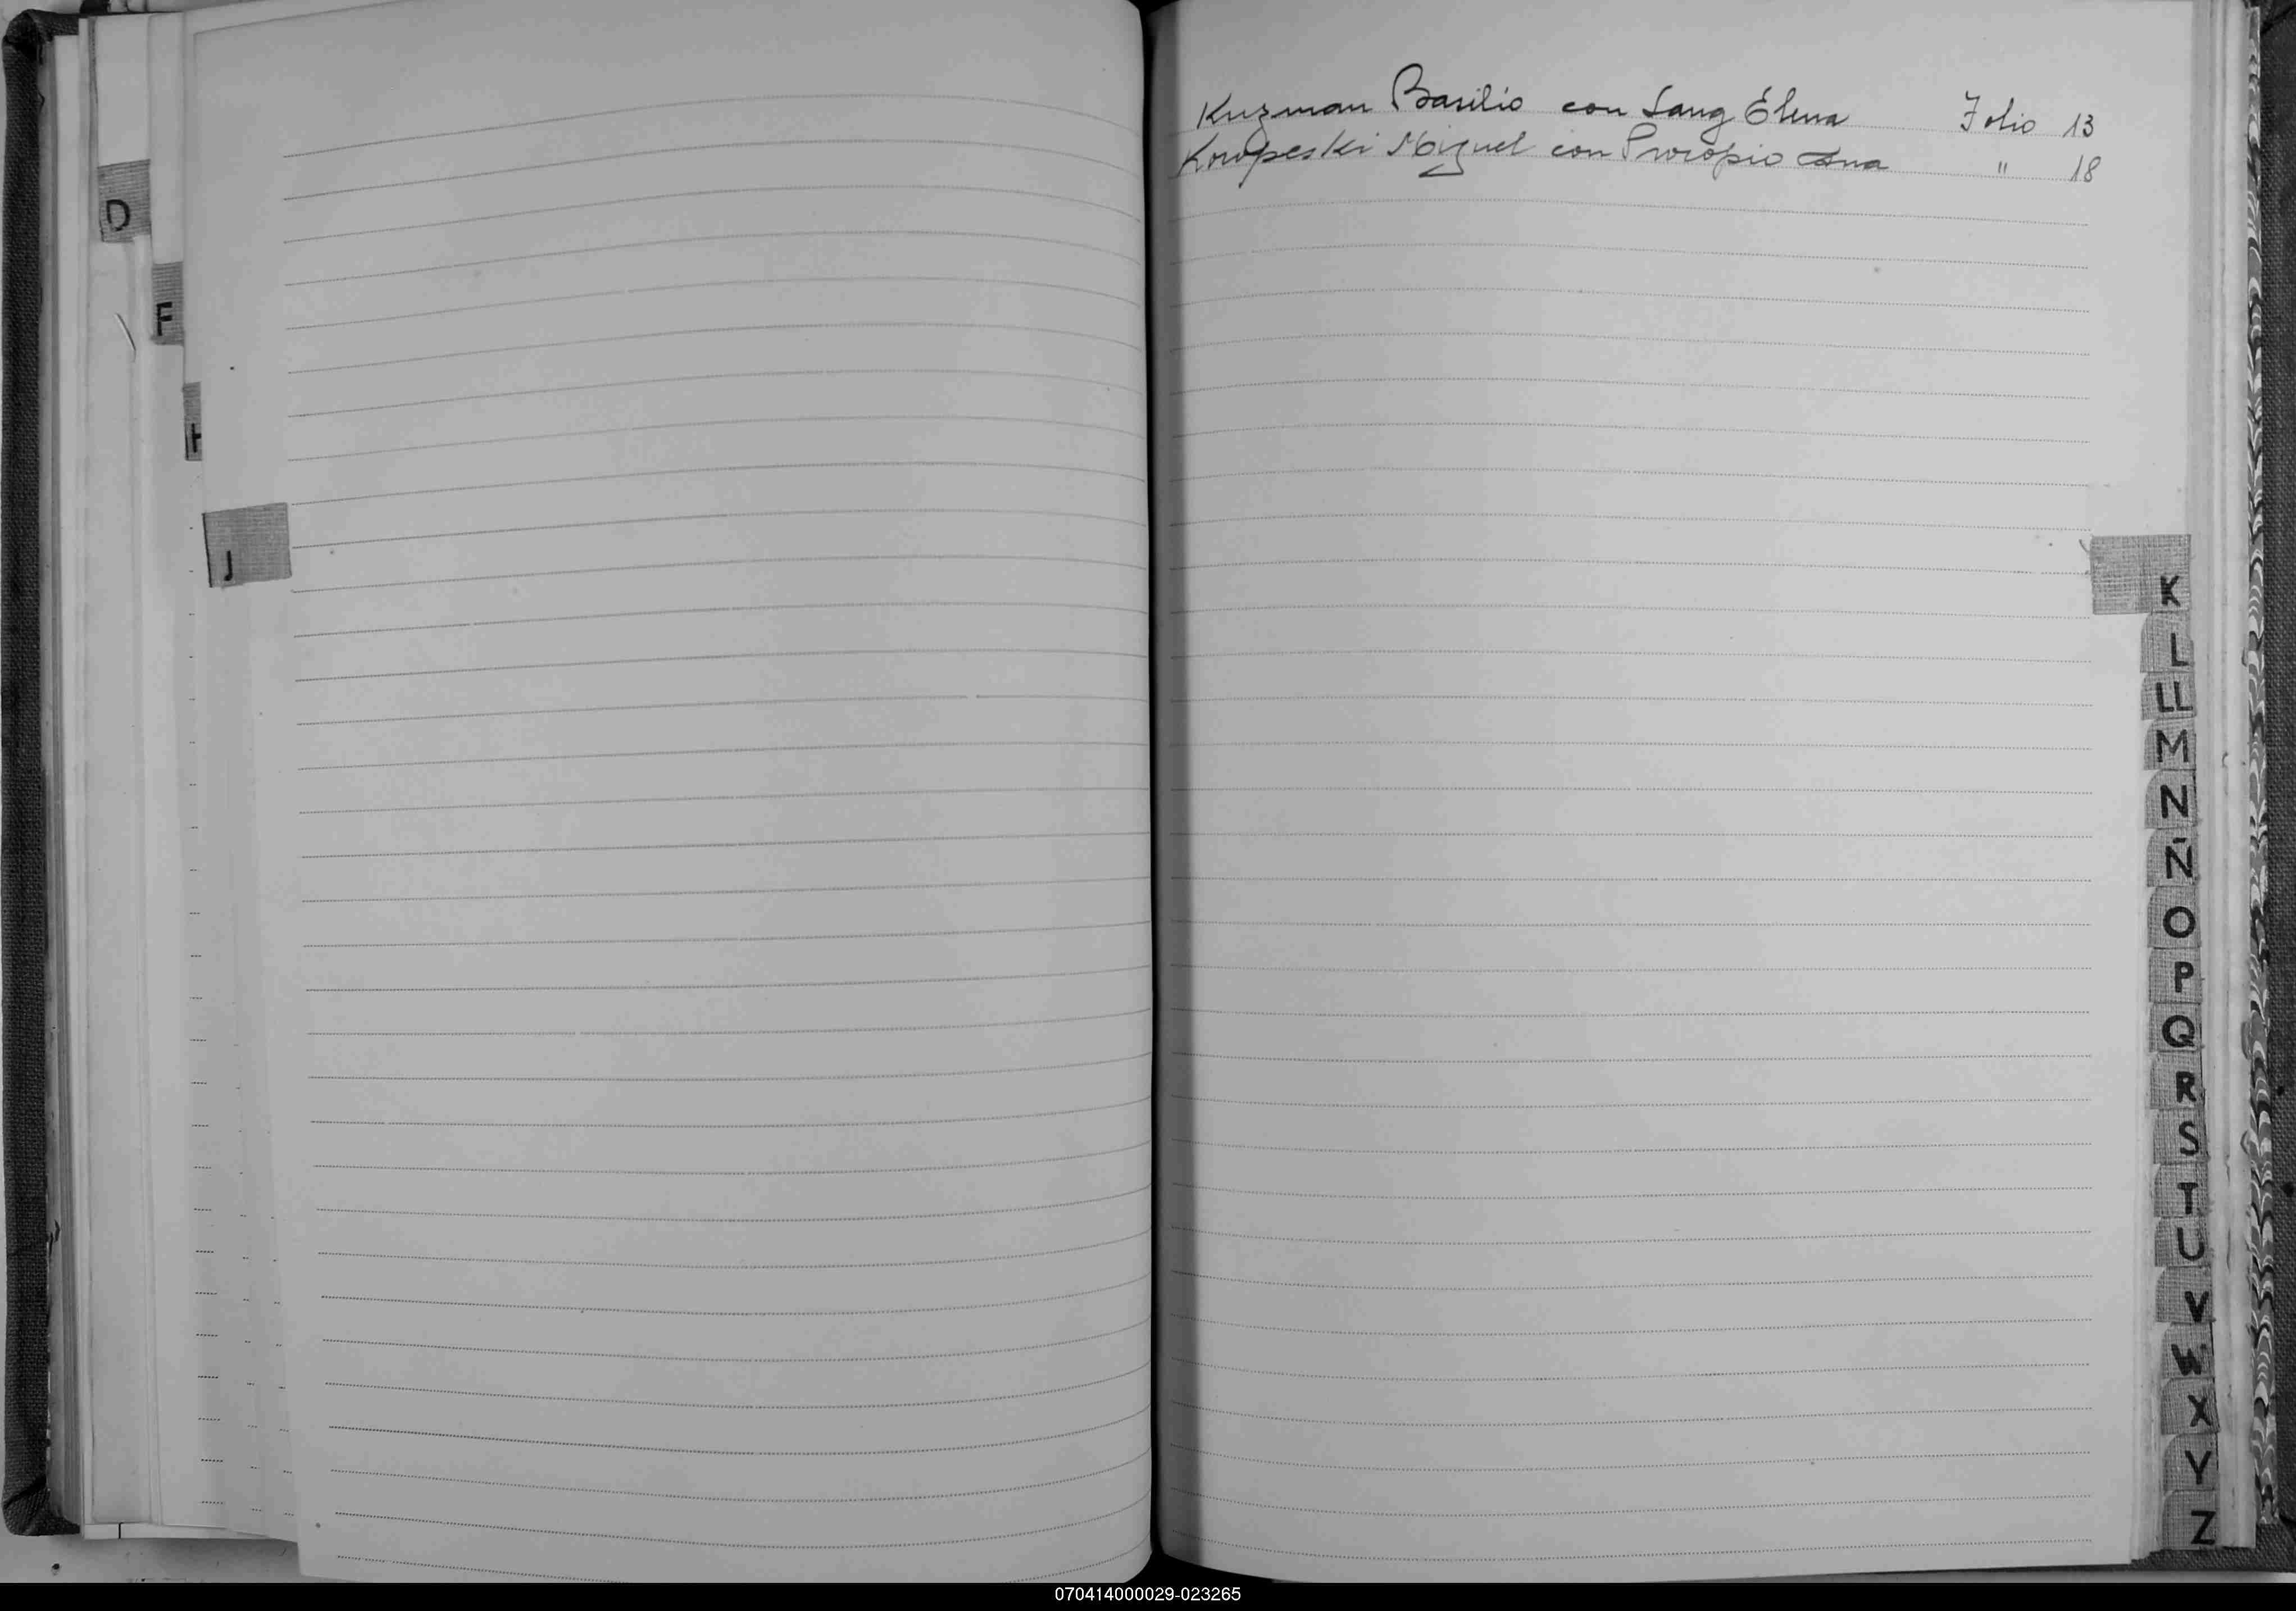 Kuzman Basilio con Lang Elena Folio 13
Kowpeski Miguel con Procopio Ana " 18
D
F
H
J
K
L
LL
M
N
Ñ
O
P
Q
R
S
T
U
V
W
X
Y
Z
070414000029-023265